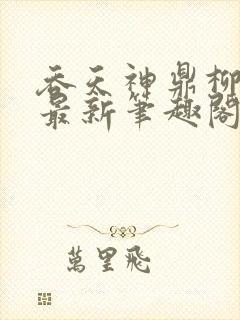 吞天神鼎柳
最新筆趣閣
萬里飛